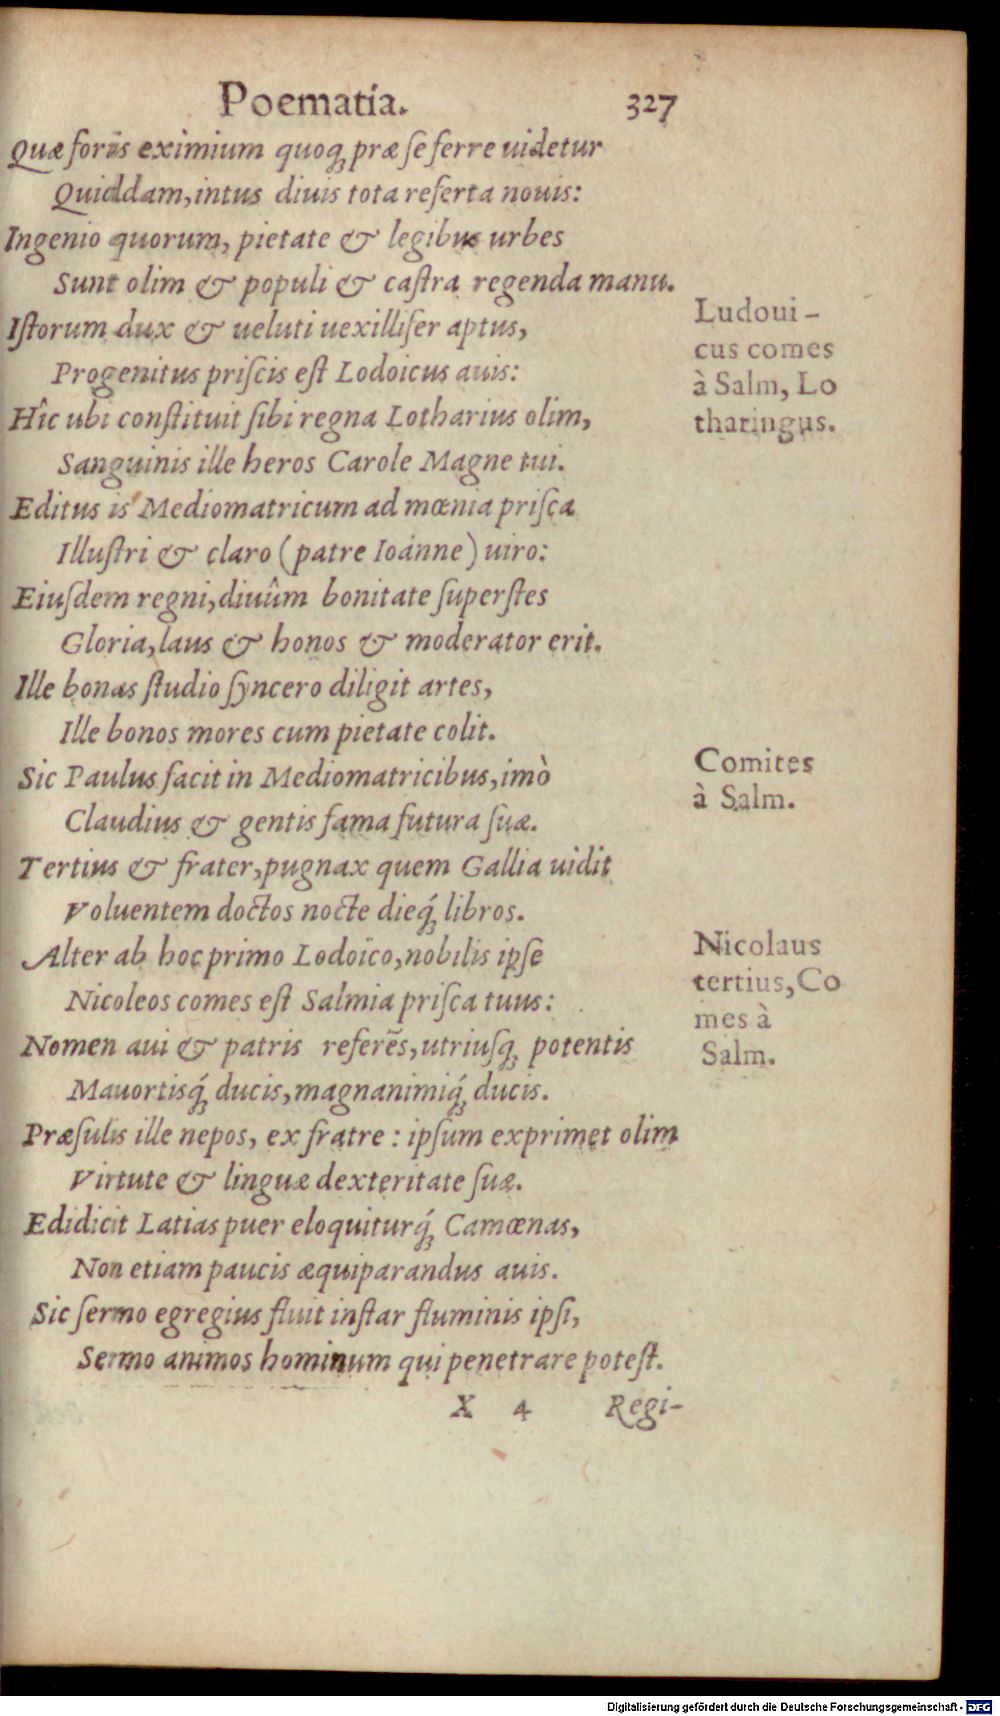 Poematia. 327
Quæ foris eximium quoq; præ se ferre uidetur
Quiddam, intus diuis tota referta nouis:
Ingenio quorum, pietate & legibus urbes
Sunt olim & populi & castra regenda manu.
Istorum dux & ueluti uexillifer aptus,
Progenitus priscis est Lodoicus auis:
Hîc ubi constituit sibi regna Lotharius olim,
Sanguinis ille heros Carole Magne tui.
Ludoui-
cus comes
à Salm, Lo
tharingus.
Editus is Mediomatricum ad mœnia prisca
Illustri & claro (patre Ioánne) uiro:
Eiusdem regni, diuûm bonitate superstes
Gloria, laus & honos & moderator erit.
Ille bonas studio syncero diligit artes,
Ille bonos mores cum pietate colit.
Sic Paulus facit in Mediomatricibus, imò
Claudius & gentis fama futura suæ.
Comites
à Salm.
Tertius & frater, pugnax quem Gallia uidit
Voluentem doctos nocte dieq́; libros.
Alter ab hoc primo Lodoïco, nobilis ipse
Nicoleos comes est Salmia prisca tuus:
Nomen aui & patris referẽs, utriusq; potentis
Mauortisq́; ducis, magnanimiq́; ducis.
Nicolaus
tertius, Co
mes à
Salm.
Præsulis ille nepos, ex fratre: ipsum exprimet olim
Virtute & linguæ dexteritate suæ.
Edidicit Latias puer eloquiturq́; Camœnas,
Non etiam paucis æquiparandus auis.
Sic sermo egregius fluit instar fluminis ipsi,
Sermo animos hominum qui penetrare potest.
X 4 Regi-
Digitalisierung gefördert durch die Deutsche Forschungsgemeinschaft - DFG